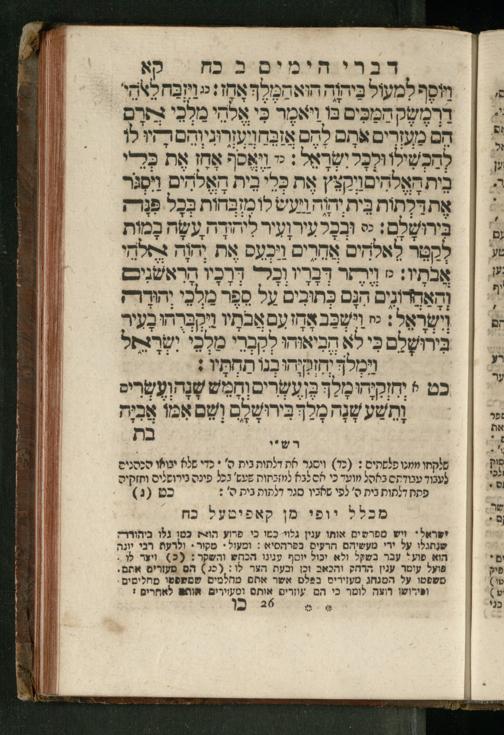 דברי הימים ב כח קא
וַיּוֹסֶף לִמְעוֹל בַּיהוָֹה הוּא הַמֶּלֶךְ אָחָז: כג וַיִּזְבַּח לֵאלֹהֵי
דַרְמֶשֶׂק הַמַּכִּים בּוֹ וַיֹּאמֶר כִּי אֱלֹהֵי מַלְכֵי אֲרָם
הֵם מַעְזְרִים אֹתָם לָהֶם אֲזַבֵּחַ וְיַעְזְרוּנִי וְהֵם הָיוּ לוֹ
לְהַכְשִׁילוֹ וּלְכָל יִשְׂרָאֵל: כד וַיֶּאֱסֹף אָחָז אֶת כְּלֵי
בֵית הָאֱלֹהִים וַיְקַצֵּץ אֶת כְּלֵי בֵית הָאֱלֹהִים וַיִּסְגֹּר
אֶת דַּלְתוֹת בֵּית יְהוָֹה וַיַּעַשׂ לוֹ מִזְבְּחוֹת בְּכָל פִּנָּה
בִּירוּשָׁלָם: כה וּבְכָל עִיר וָעִיר לִיהוּדָה עָשָׂה בָמוֹת
לְקַטֵּר לֵאלֹהִים אֲחֵרִים וַיַּכְעֵס אֶת יְהוָֹה אֱלֹהֵי
אֲבֹתָיו: כו וְיֶתֶר דְּבָרָיו וְכָל דְּרָכָיו הָרִאשֹׁנִים
וְהָאַחֲרוֹנִים הִנָּם כְּתוּבִים עַל סֵפֶר מַלְכֵי יְהוּדָה
וְיִשְׂרָאֵל: כח וַיִּשְׁכַּב אָחָז עִם אֲבֹתָיו וַיִּקְבְּרֻהוּ בָעִיר
בִּירוּשָׁלִַם כִּי לֹא הֱבִיאוּהוּ לְקִבְרֵי מַלְכֵי יִשְׂרָאֵל
וַיִּמְלֹךְ יְחִזְקִיָּהוּ בְנוֹ תַּחְתָּיו:
כט א יְחִזְקִיָּהוּ מָלַךְ בֶּן עֶשְׂרִים וְחָמֵשׁ שָׁנָה וְעֶשְׂרִים
וָתֵשַׁע שָׁנָה מָלַךְ בִּירוּשָׁלִָם וְשֵׁם אִמּוֹ אֲבִיָּה
בת
רש״י
שלקחו ממנו פלשתים: (כד) ויסגר את דלתות בית ה׳: כדי שלא יבואו הכהנים
לעבוד עבודתם באהל מועד כי אם לבא למזבחות שעש׳ בכל פינה בירושלים וחזקיה
פתח דלתות בית ה׳ לפי שאביו סגר דלתות בית ה׳: כט (ג)
מכלל יופי מן קאפיטעל כח
ישראל: ויש מפרשים אותו ענין גלוי כמו כי פרוע הוא כמו גלו ביהודה
שנתגלו על ידי מעשיהם הרעים בפרהסיא: ומעול. מקור. ולדעת רבי יונה
הוא פועל עבר בשקל ולא יכול יוסף ענינו הכחש והשקר: (כ) ויצר לו.
פועל עומד ענין הדחק והכאב וכן ובעת הצר לו: (כג) הם מעזרים אתם.
משפטו על המנהג מעזירים בפלס אשר אתם מחלמים שמשפטו מחלימים.
ופירושו רוצה לומר כי הם עוזרים אותם ומעזירים אותם לאחרים:
26 כו